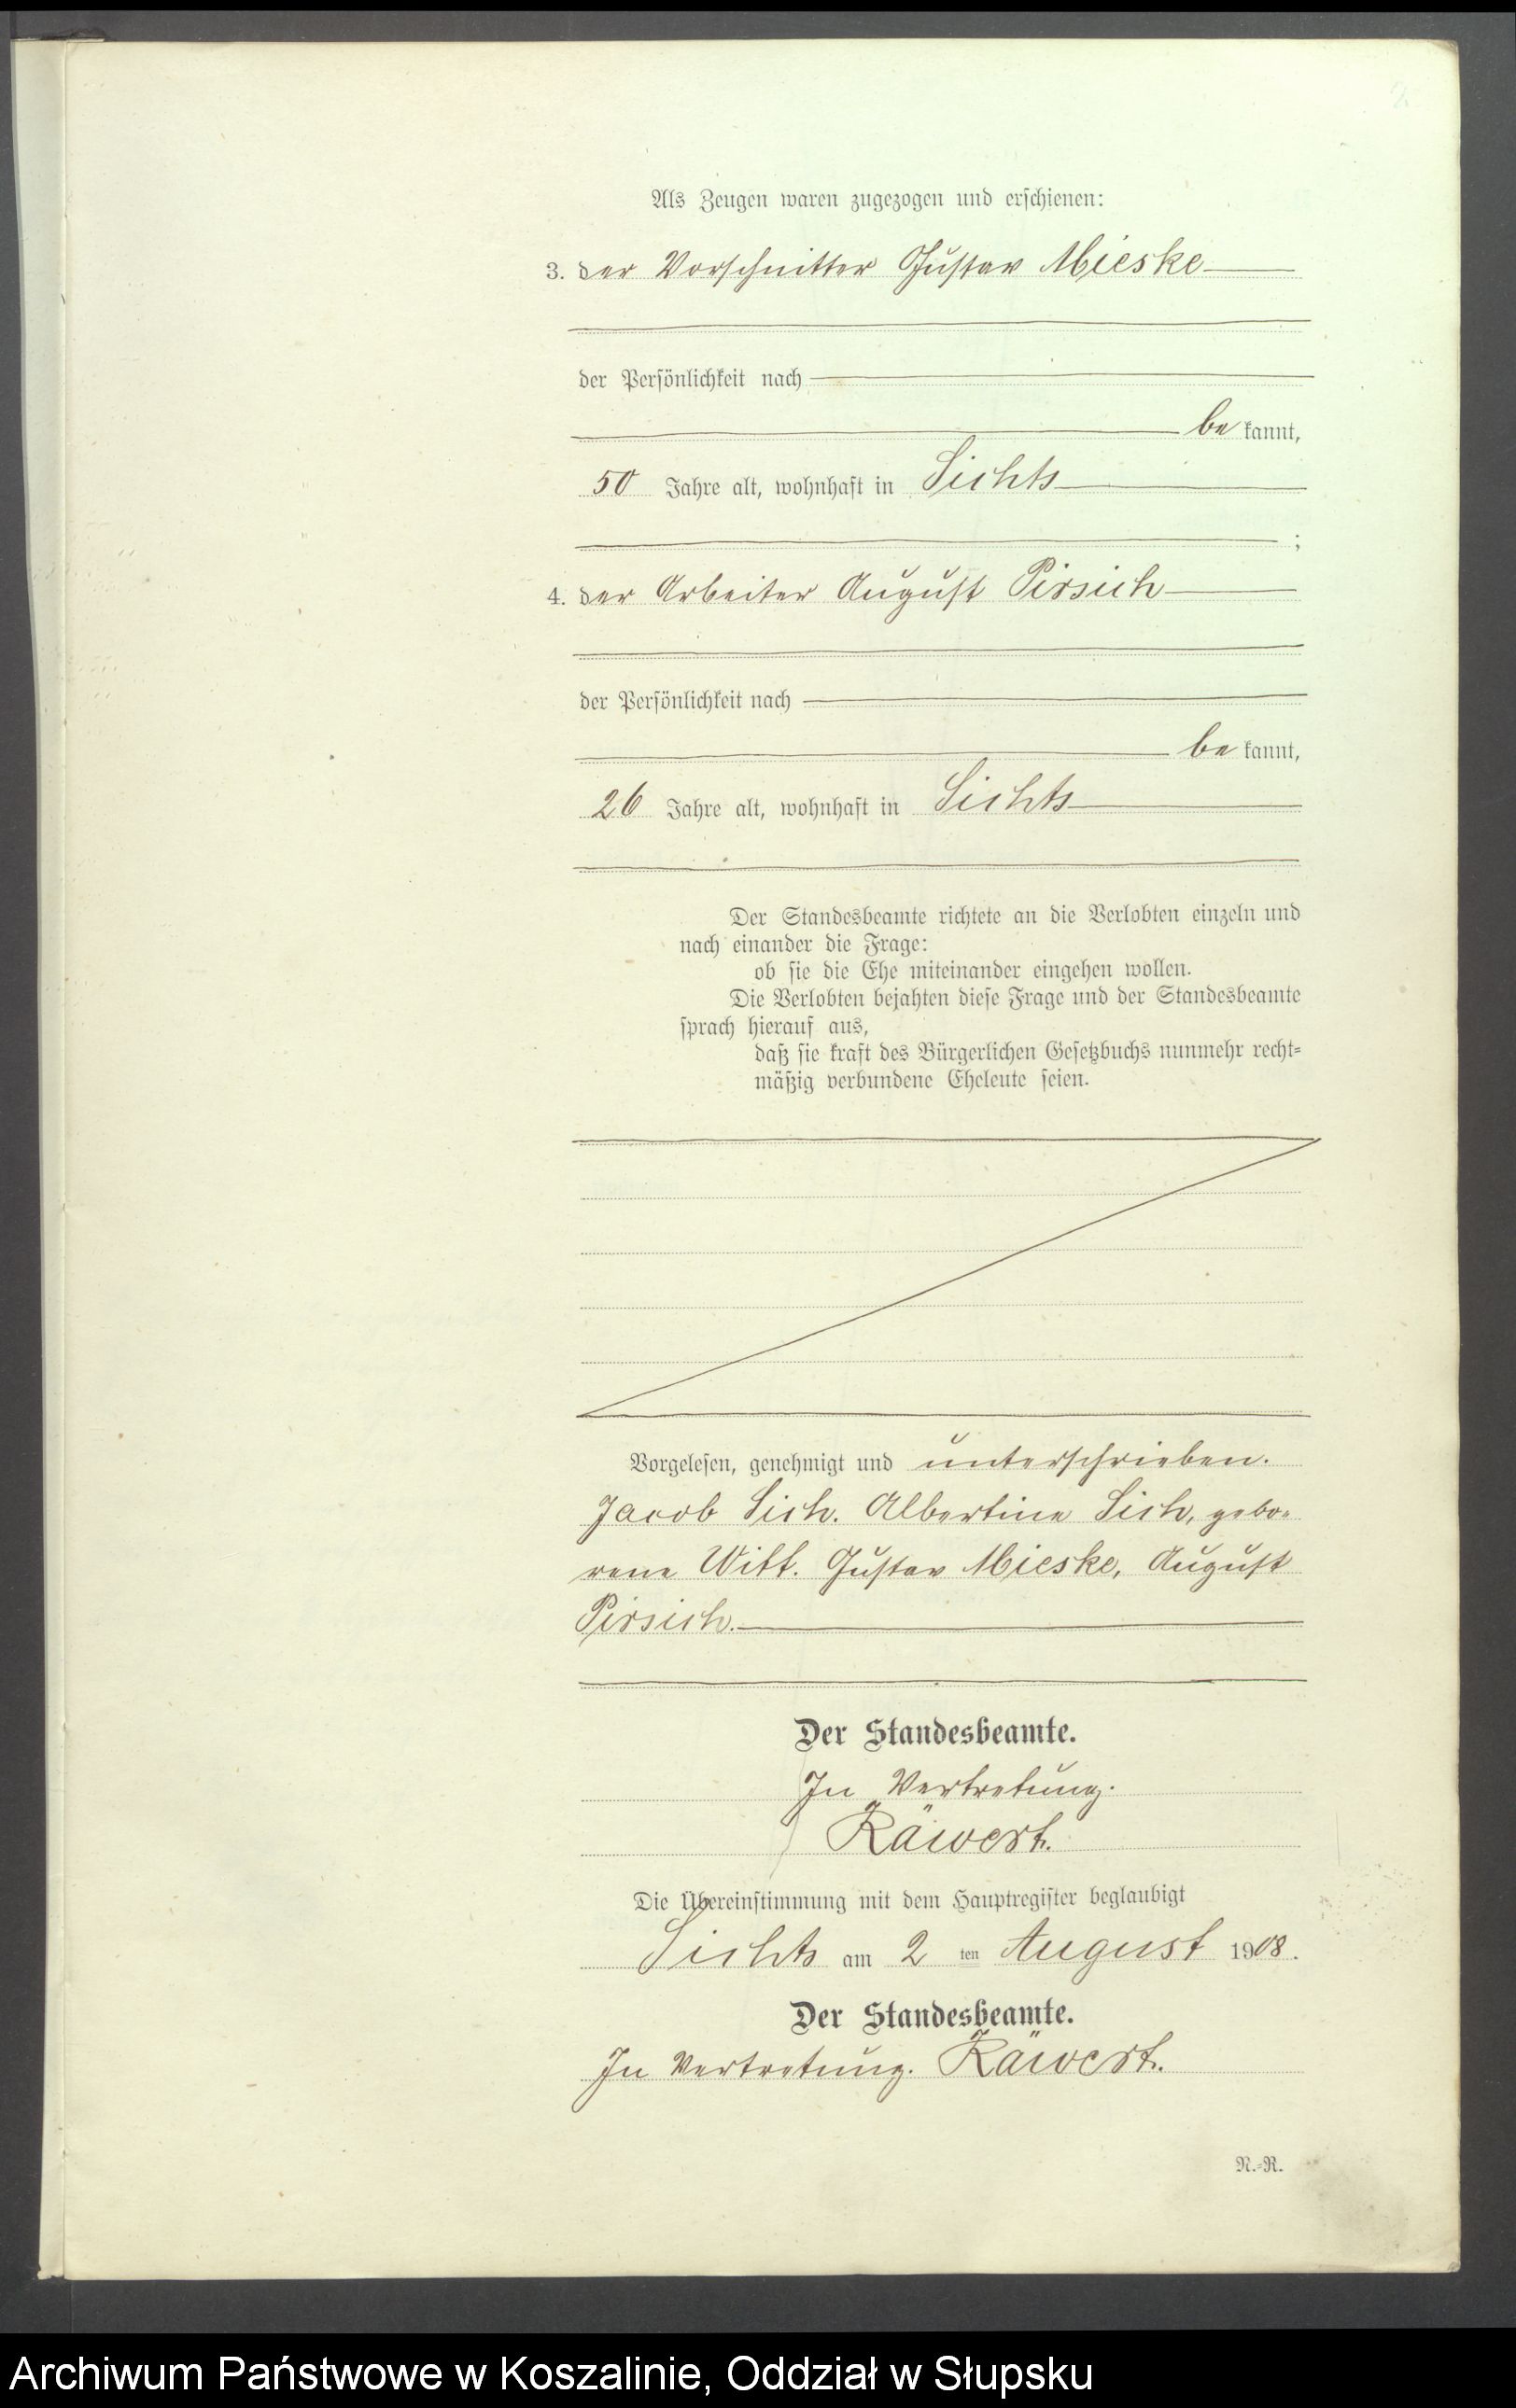 Als Zeugen waren zugezogen und erschienen:
3. der Vorschnitter Gustav Mieske
der Persönlichkeit nach
be kannt,
50 Jahre alt, wohnhaft in Sichts
;
4. der Arbeiter August Pirsich
der Persönlichkeit nach
be kannt,
26 Jahre alt, wohnhaft in Sichts
Der Standesbeamte richtete an die Verlobten einzeln und
nach einander die Frage:
ob sie die Ehe miteinander eingehen wollen.
Die Verlobten bejahten diese Frage und der Standesbeamte
sprach hierauf aus,
daß sie kraft des Bürgerlichen Gesetzbuchs nunmehr recht=
mäßig verbundene Eheleute seien.
Vorgelesen, genehmigt und unterschrieben.
Jacob Sich. Albertine Sich, gebo-
rene Witt. Gustav Mieske, August
Pirsich.
Der Standesbeamte.
In Vertretung.
Räwert.
Die Übereinstimmung mit dem Hauptregister beglaubigt
Sichts am 2 ten August 1908.
Der Standesbeamte.
In Vertretung. Räwert.
N.=R.
Archiwum Państwowe w Koszalinie, Oddział w Słupsku